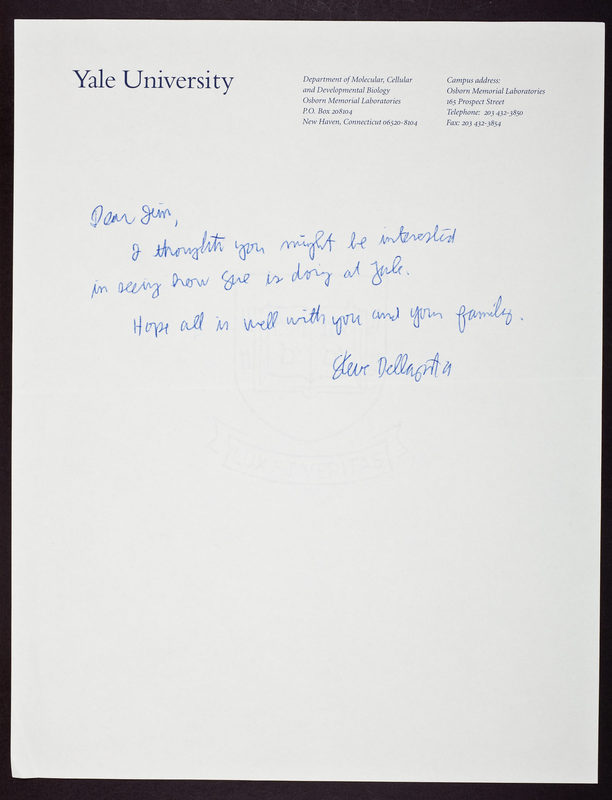 Yale University
Department of Molecular, Cellular
and Developmental Biology
Osborn Memorial Laboratories
P.O. Box 208104
New Haven, Connecticut 06520-8104
Campus address:
Osborn Memorial Laboratories
165 Prospect Street
Telephone: 203 432-3850
Fax: 203 432-3854
Dear Jim,
I thought you might be interested
in seeing how Sue is doing at Yale.
Hope all is well with you and your family.
Steve Dellaporta
LUX ET VERITAS